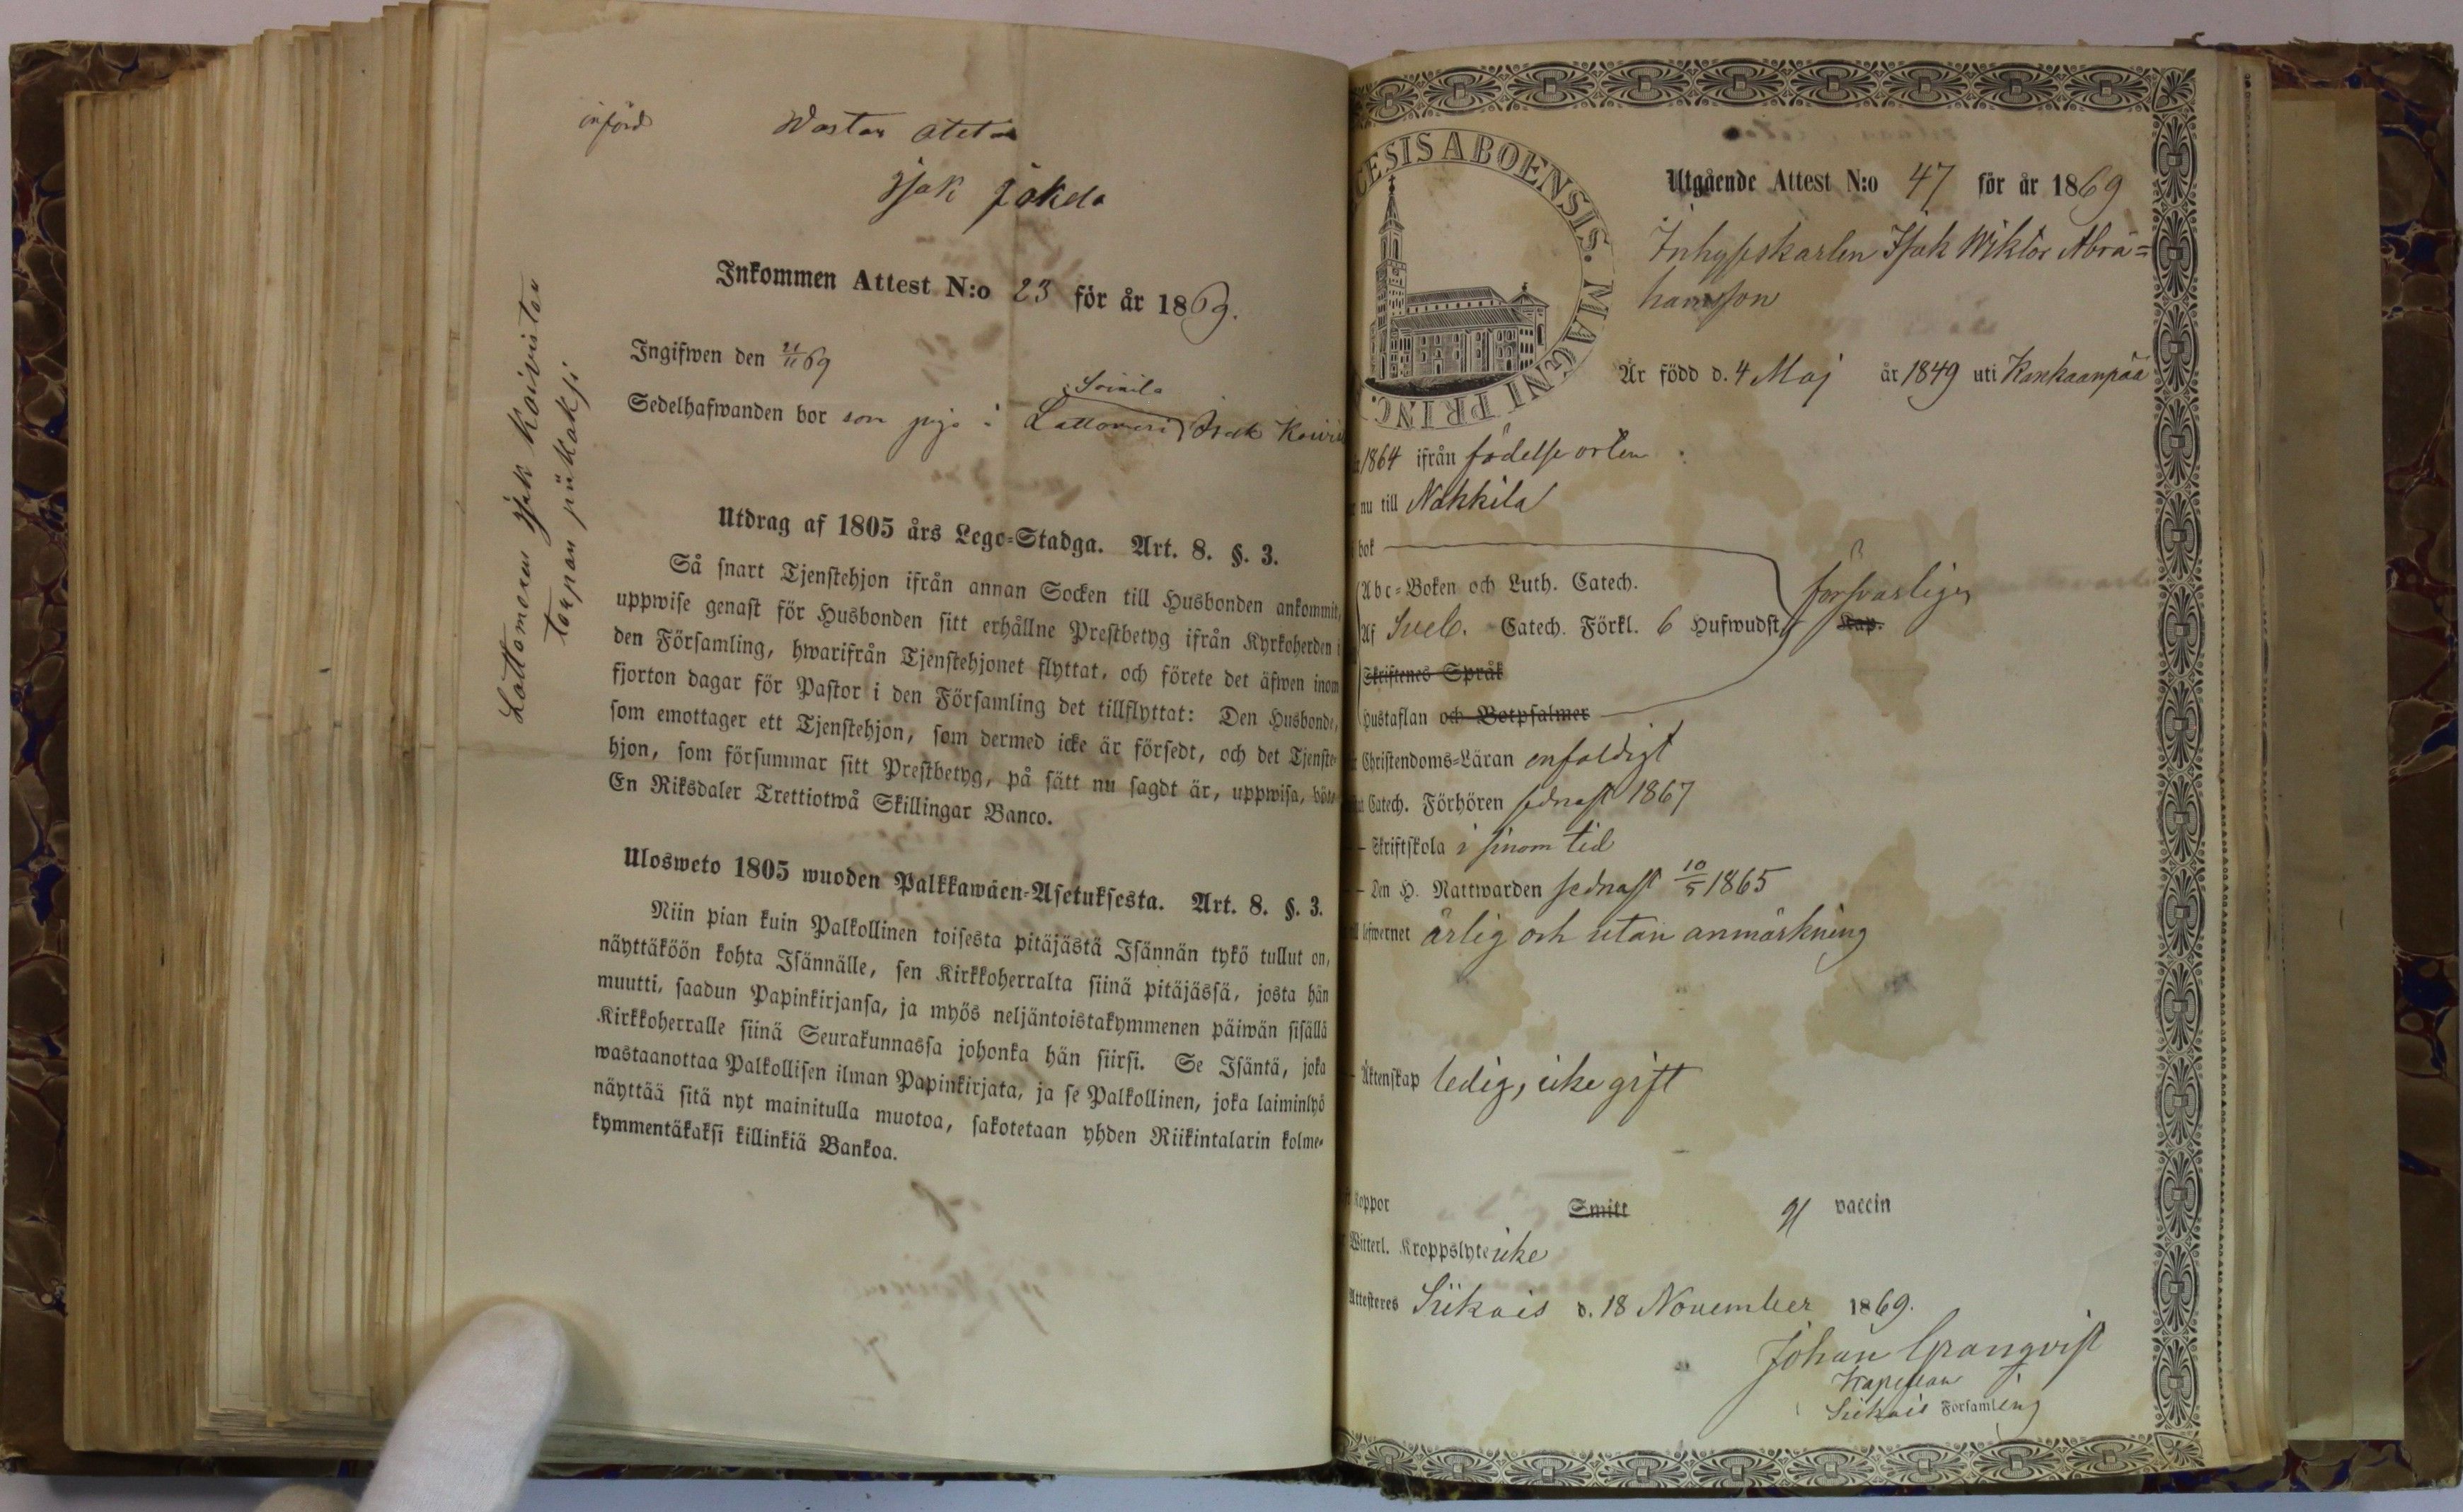 införd
Wastan otetan
Isak Jokela
Inkommen Attest N:o 23 för år 1869.
Ingifwen den 21/11 69
Soinila
Sedelhafwanden bor som piga i Lattomeri Isak Koivis
Lattomeren Isak Koiviston
torpan piikaksi
Utdrag af 1805 års Lego-Stadga. Art. 8. §. 3.
Så snart Tjenstehjon ifrån annan Socken till Husbonden ankommit,
uppwise genast för Husbonden sitt erhållne Prestbetyg ifrån Kyrkoherden i
den Församling, hwarifrån Tjenstehjonet flyttat, och förete det äfwen inom
fjorton dagar för Pastor i den Församling det tillflyttat: Den Husbonde,
som emottager ett Tjenstehjon, som dermed icke är försedt, och det Tjenste-
hjon, som försummar sitt Prestbetyg, på sätt nu sagdt är, uppwisa, böte
En Riksdaler Trettiotwå Skillingar Banco.
Ulosweto 1805 wuoden Palkkawäen-Asetuksesta. Art. 8. §. 3.
Niin pian kuin Palkollinen toisesta pitäjästä Isännän tykö tullut on,
näyttäköön kohta Isännälle, sen Kirkkoherralta siinä pitäjässä, josta hän
muutti, saadun Papinkirjansa, ja myös neljäntoistakymmenen päiwän sisällä
Kirkkoherralle siinä Seurakunnassa johonka hän siirsi. Se Isäntä, joka
wastaanottaa Palkollisen ilman Papinkirjata, ja se Palkollinen, joka laiminlyö
näyttää sitä nyt mainitulla muotoa, sakotetaan yhden Riikintalarin kolme-
kymmentäkaksi killinkiä Bankoa.
CESIS ABOENSIS. MAGNI PRINC.
Utgående Attest N:o 47 för år 1869
Inhyseskarlen Isak Wiktor Abra=
hamsson
Är född d. 4 Maj år 1849 uti Kankaanpää
1864 ifrån födelse orten
nu till Nakkila
bok
Abc-Boken och Luth. Catech. försvarligen
Af Sveb. Catech. Förkl. 6 Hufwudst. Kap.
Skriftenes Språk
Hustaflan och Botpsalmer
Christendoms-Läran enfaldigt
Catech. Förhören sednast 1867
Skriftskola i sinom tid
Den H. Nattwarden sednast 10/5 1865
lefwernet ärlig och utan anmärkning
Äktenskap ledig, icke gift
Koppor Smitt vaccin
Witterl. Kroppslyte icke
Attesteres Siikais d. 18 November 1869.
Johan Granqvist
Kapellan
Siikais Församling